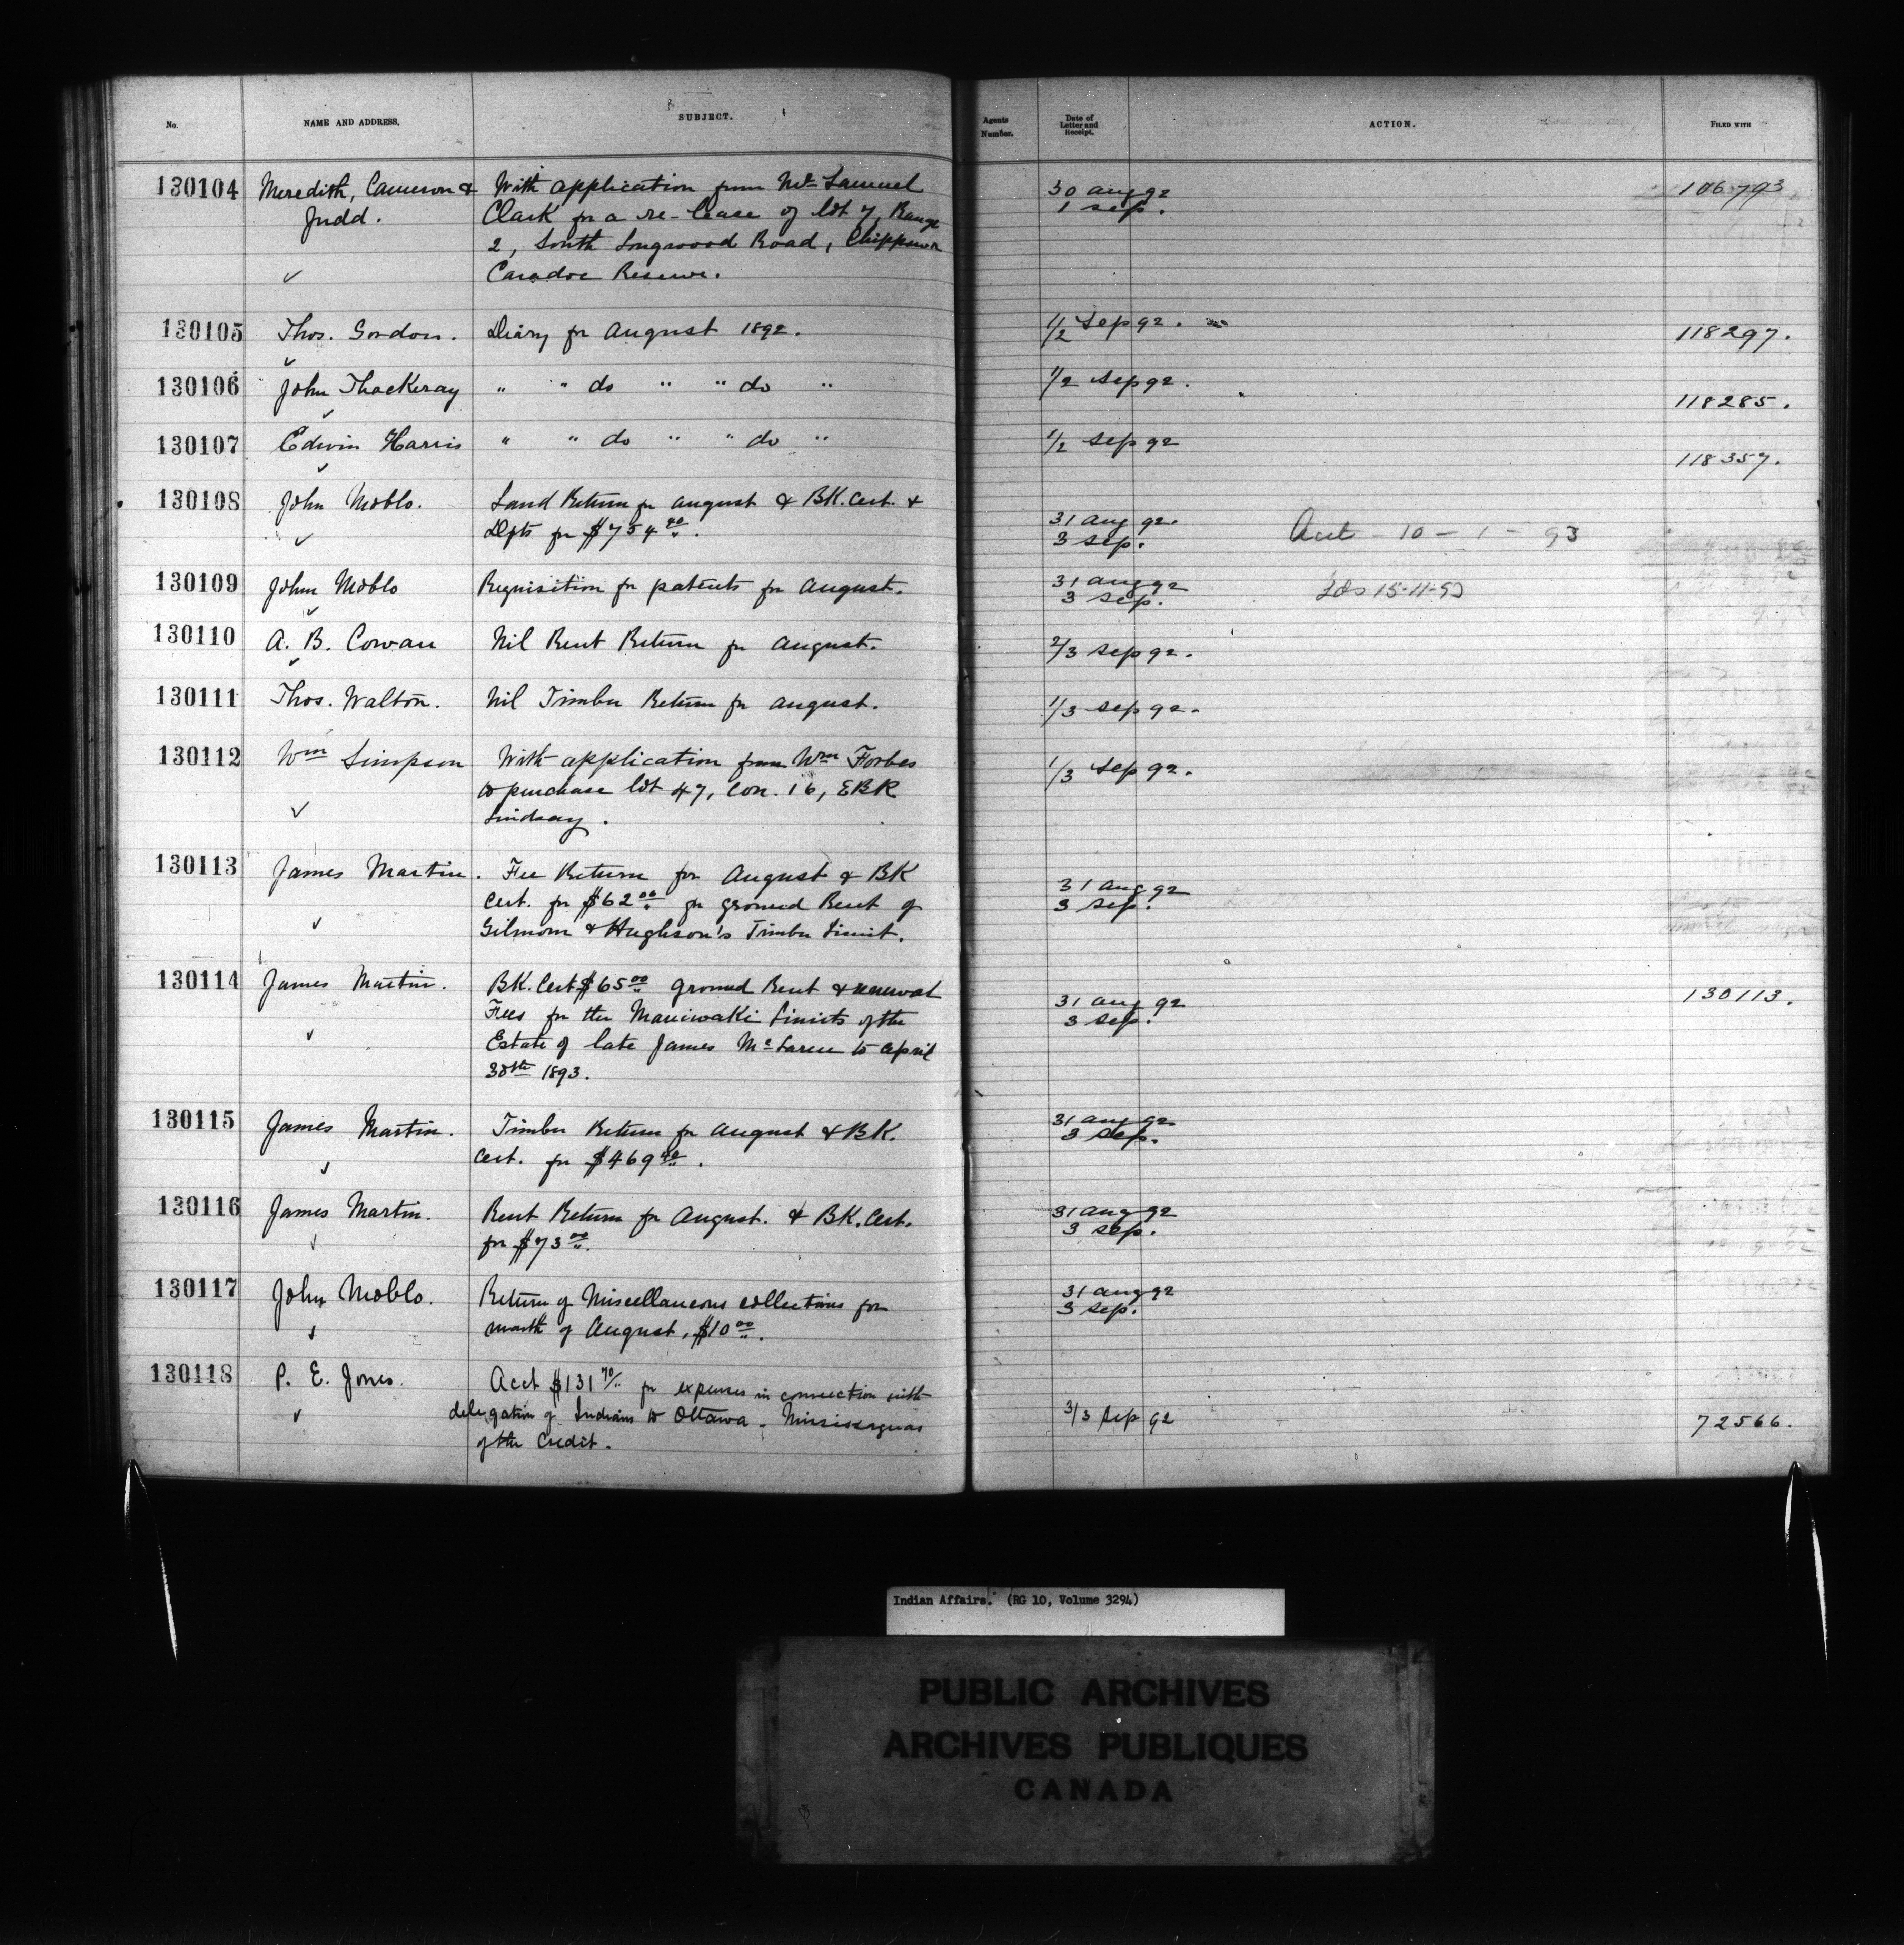 No. NAME AND ADDRESS. SUBJECT. Agents Number. Date of Letter and Receipt. ACTION. FILED WITH
130104 Meredith, Cameron & With application from Mr Samuel 30 Aug 92 106793
Judd. Clark for a re-lease of lot 7, Range 1 Sep.
2, South Longwood Road, Chippewa
✓ Caradoc Reserve.
130105 Thos. Gordon. Diary for August 1892. 1/2 Sep 92. 118297.
✓
130106 John Thackeray " " do " " do " 1/2 Sep 92. 118285.
✓
130107 Edwin Harris " " do " " do " 1/2 Sep 92 118357.
✓
130108 John Moblo. Land Return for August & BK. Cert. & 31 Aug 92.
✓ Dfts for $754 40. 3 Sep. 10 - 1 - 93
130109 John Moblo Requisition for patents for August. 31 Aug 92
✓ 3 Sep.
130110 A. B. Cowan Nil Rent Return for August. 2/3 Sep 92.
✓
130111 Thos. Walton. Nil Timber Return for August. 1/3 Sep 92.
130112 Wm Simpson With application from Wm Forbes 1/3 Sep 92.
to purchase lot 47, Con. 16, EBR
✓ Lindsay.
130113 James Martin. Fee Return for August & BK 31 Aug 92
Cert. for $62 00 for ground Rent of 3 Sep.
✓ Gilmour & Hughson's Timber Limit.
130114 James Martin. BK. Cert $65 00 ground Rent & renewal 31 Aug 92 130113.
Fees for the Maniwaki Limits of the 3 Sep.
✓ Estate of late James McLaren to April
30th 1893.
130115 James Martin. Timber Return for August & BK. 31 Aug 92
✓ Cert. for $469 40. 3 Sep.
130116 James Martin. Rent Return for August. & BK. Cert. 31 Aug 92
✓ for $73 00. 3 Sep.
130117 John Moblo. Return of Miscellaneous collections for 31 Aug 92
✓ month of August, $10 00. 3 Sep.
130118 P. E. Jones. Acct $131 70/ for expenses in connection with
✓ delegation of Indians to Ottawa - Mississaguas 3/3 Sep 92 72566.
of the Credit.
Indian Affairs. (RG 10, Volume 3294)
PUBLIC ARCHIVES
ARCHIVES PUBLIQUES
CANADA